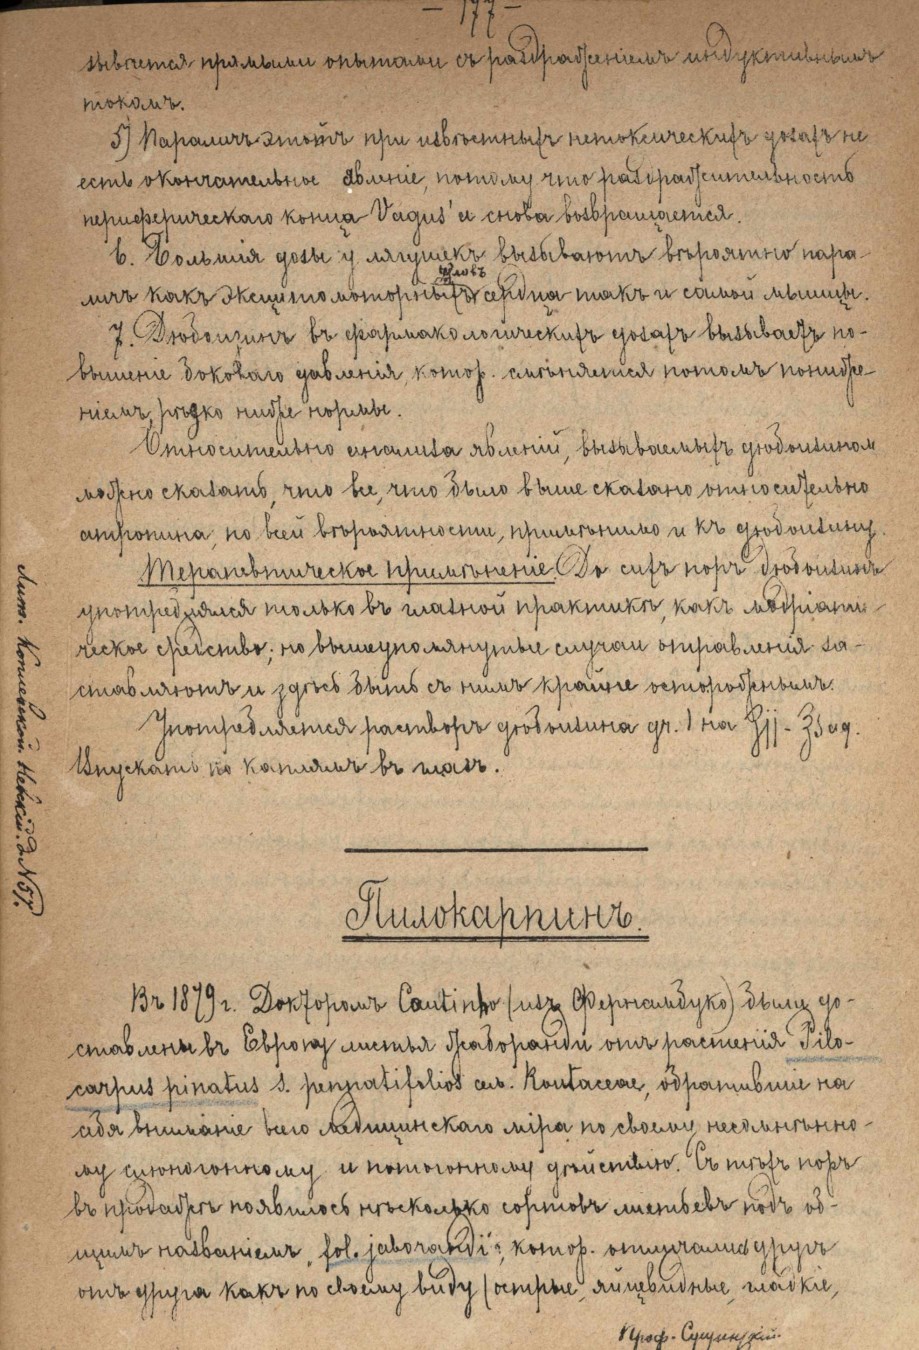 — 177 —
зывается прямыми опытами съ раздраженіемъ индуктивнымъ
токомъ.
5) Параличъ этотъ при извѣстныхъ нетоксическихъ дозахъ не
есть окончательное явленіе, потому что раздражительность
периферическаго конца Vagus'а снова возвращается.
6. Большія дозы у лягушекъ вызываютъ вѣроятно пара-
личъ какъ эксцитомоторныхъ узловъ сердца такъ и самой мышцы.
7. Дюбоизинъ въ фармакологическихъ дозахъ вызываетъ по-
вышеніе боковаго давленія, котор. смѣняется потомъ пониже-
ніемъ, рѣдко ниже нормы.
Относительно анализа явленій, вызываемыхъ дюбоизиномъ
можно сказать, что все, что было выше сказано относительно
атропина, по всей вѣроятности, примѣнимо и къ дюбоизину.
Терапевтическое примѣненіе. До сихъ поръ дюбоизинъ
употреблялся только въ глазной практикѣ, какъ мидріати-
ческое средство; но вышеупомянутые случаи отравленія за-
ставляютъ и здѣсь быть съ нимъ крайне осторожнымъ.
Употребляется растворъ дюбоизина gr. 1 на ʒjj - ℥ aq.
Впускать по каплямъ въ глазъ.
Пилокарпинъ.
Въ 1879 г. Докторомъ Coutinho (изъ Фернамбуко) были до-
ставлены въ Европу листья жаборанди отъ растенія Pilo-
carpus pinatus s. pennatifolios сем. Routaceae, обратившіе на
себя вниманіе всего медицинскаго міра по своему несомнѣнно-
му слюногонному и потогонному дѣйствію. Съ тѣхъ поръ
въ продажѣ появилось нѣсколько сортовъ листьевъ подъ об-
щимъ названіемъ „fol. jaborandi“, котор. отличались другъ
отъ друга какъ по своему виду (острые, яйцевидные, гладкіе,
Проф. Сущинскій.
Лит. Невскій. д. N 57.